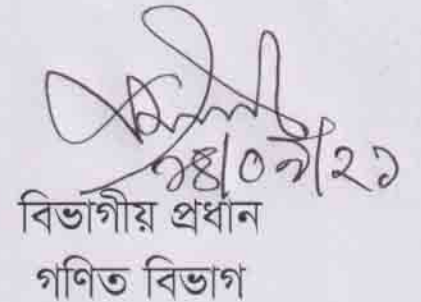 ১৪/০৯/২১
বিভাগীয় প্রধান
গণিত বিভাগ